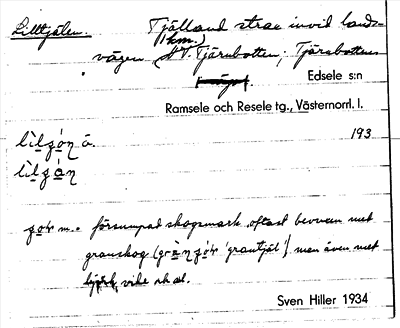 Lilltjälen. Tjälland strax invid lands-
(1 km.)
vägen NV. Tjärnbotten; Tjärnbottens
Edsele s:n
Ramsele och Resele tg., Västernorrl. l.
193
m. försumpad skogsmark oftast bevuxen met
granskog ( 'grantjäl') men även met
björk, vide o. al.
Sven Hiller 1934